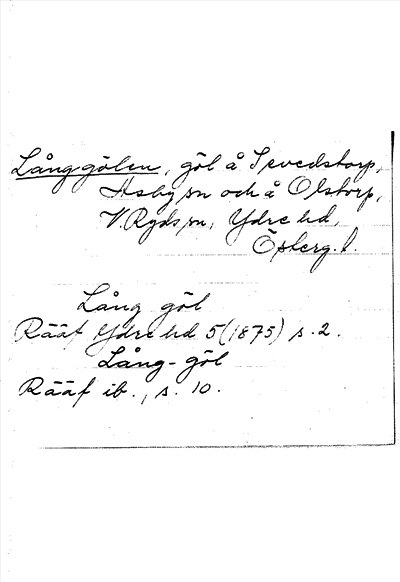 Långgölen, göl å Sevedstorp,
Asby sn och å Olstorp,
V. Ryds sn, Ydre hd,
Österg. l.
Lång göl
Rääf Ydre hd 5 (1875) s. 2.
Lång-göl
Rääf ib., s. 10.